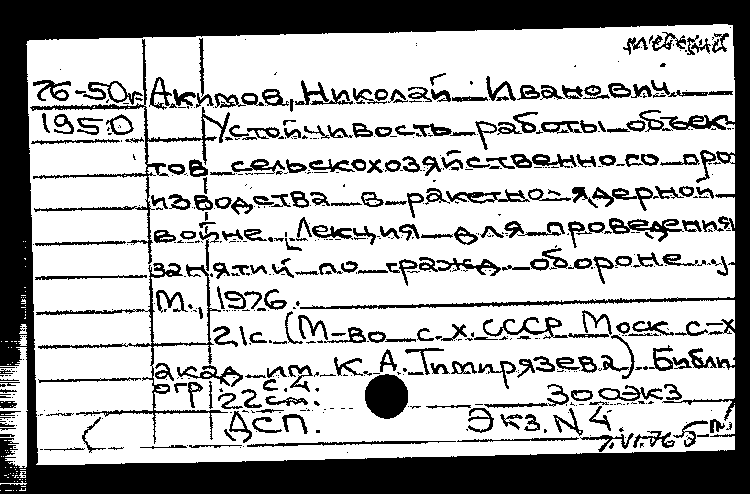 76-50г Акимов, Николай Иванович.
1950 Устойчивость работы объек-
тов сельскохозяйственного про
изводства в ракетно-ядерной
войне. [Лекция для проведения
занятий по гражд. обороне...]
М., 1976.
21с (М-во с.х. СССР. Моск с-х
акад. им. К.А. Тимирязева) Библи
огр с.4.
22 см. 300экз.
ДСП. Экз. N 4.